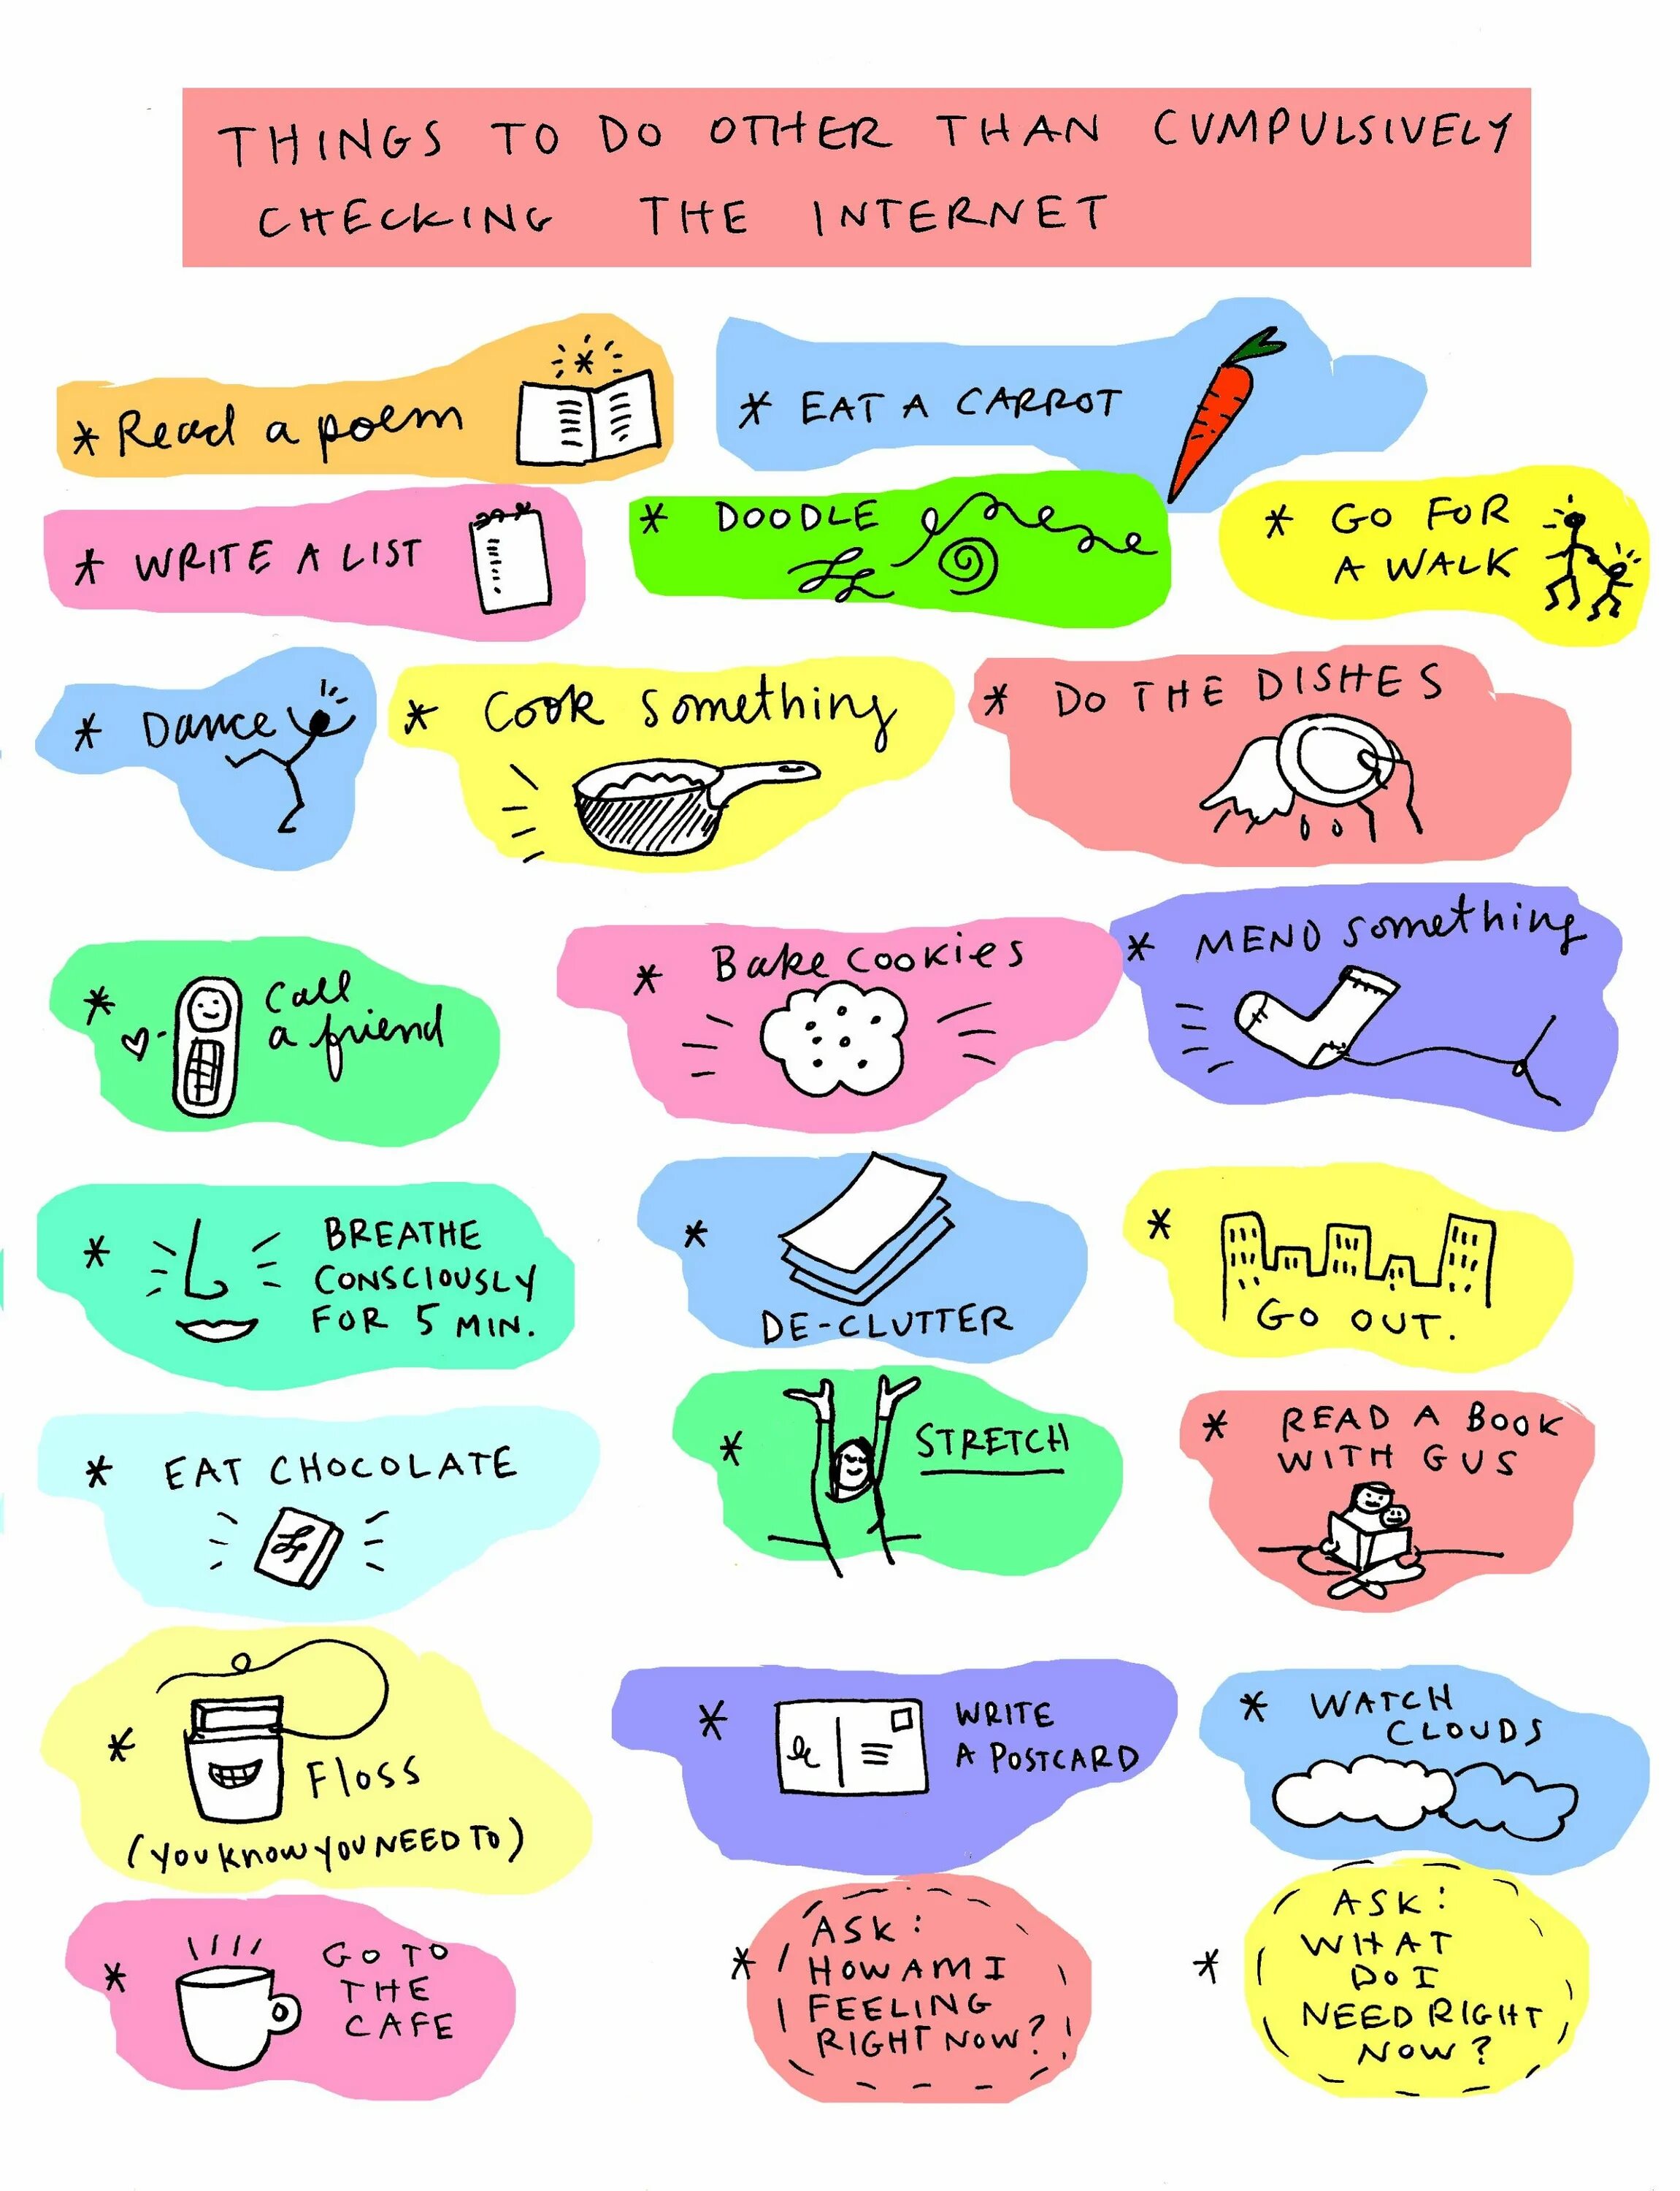 THINGS TO DO OTHER THAN CUMPULSIVELY
CHECKING THE INTERNET
* Read a poem
* EAT A CARROT
* WRITE A LIST
* DOODLE
* GO FOR
A WALK
* Dance
* Cook something
* DO THE DISHES
* Call
a friend
* Bake cookies
* MEND something
* BREATHE
CONSCIOUSLY
FOR 5 MIN.
* DE-CLUTTER
* GO OUT.
* EAT CHOCOLATE
* STRETCH
* READ A BOOK
WITH GUS
* Floss
(YOU KNOW YOU NEED TO)
* WRITE
A POSTCARD
* WATCH
CLOUDS
* GO TO
THE
CAFE
* ASK:
HOW AM I
FEELING
RIGHT NOW?
* ASK:
WHAT
DO I
NEED RIGHT
NOW?